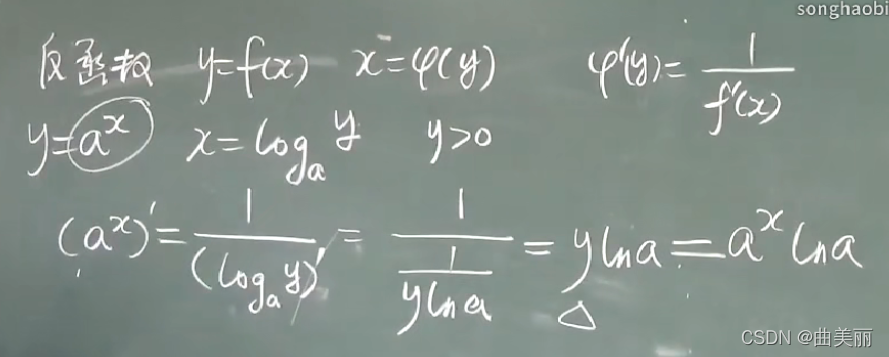 songhaobi
反函数 y=f(x) x=φ(y) φ'(y)=1/f'(x)
y=a^x x=log_a y y>0
(a^x)'=1/(log_a y)'=1/(1/(y ln a))=y ln a=a^x ln a
△
CSDN @曲美丽